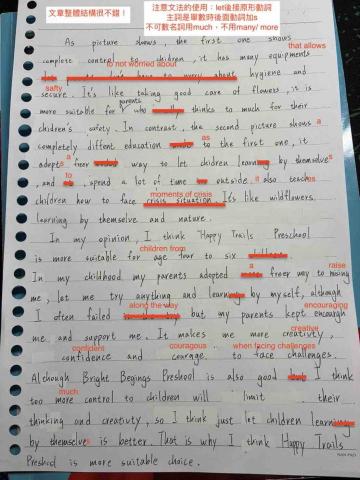 文章整體結構很不錯！
注意文法的使用：let後接原形動詞
主詞是單數時後面動詞加s
不可數名詞用much，不用many/ more
As picture shows, the first one shows
that allows
complete control to children, it has many equipments
to not worried about
hygiene and
safty
secure. It's like taking good care of flowers, it is
parents
more suitable for who thinks to much for their
children's safety. In contrast, the second picture shows a
as
completely diffent education to the first one, it
adopts a free way to let children learn by themselves
, and to spend a lot of time outside, it also teaches
moments of crisis
children how to face crisis situation. It's like wildflowers.
learning by themselves and nature.
In my opinion, I think Happy Trails Preschool
children from
is more suitable for age four to six
a raise
In my childhood my parents adopted freer way to
me, let me try anything and learn by myself, although
along the way encouraging
I often failed but my parents kept encourgh
me and support me. It makes me more creativity,
creative
confident couragous when facing challenges
confidence and courage. to face challenges.
Although Bright Begings Preshool is also good I think
much
too more control to children will limit their
thinking and creativty, so I think just let children learn
by themselves is better. That is why I think Happy Trails
Preshool is more suitable choice.